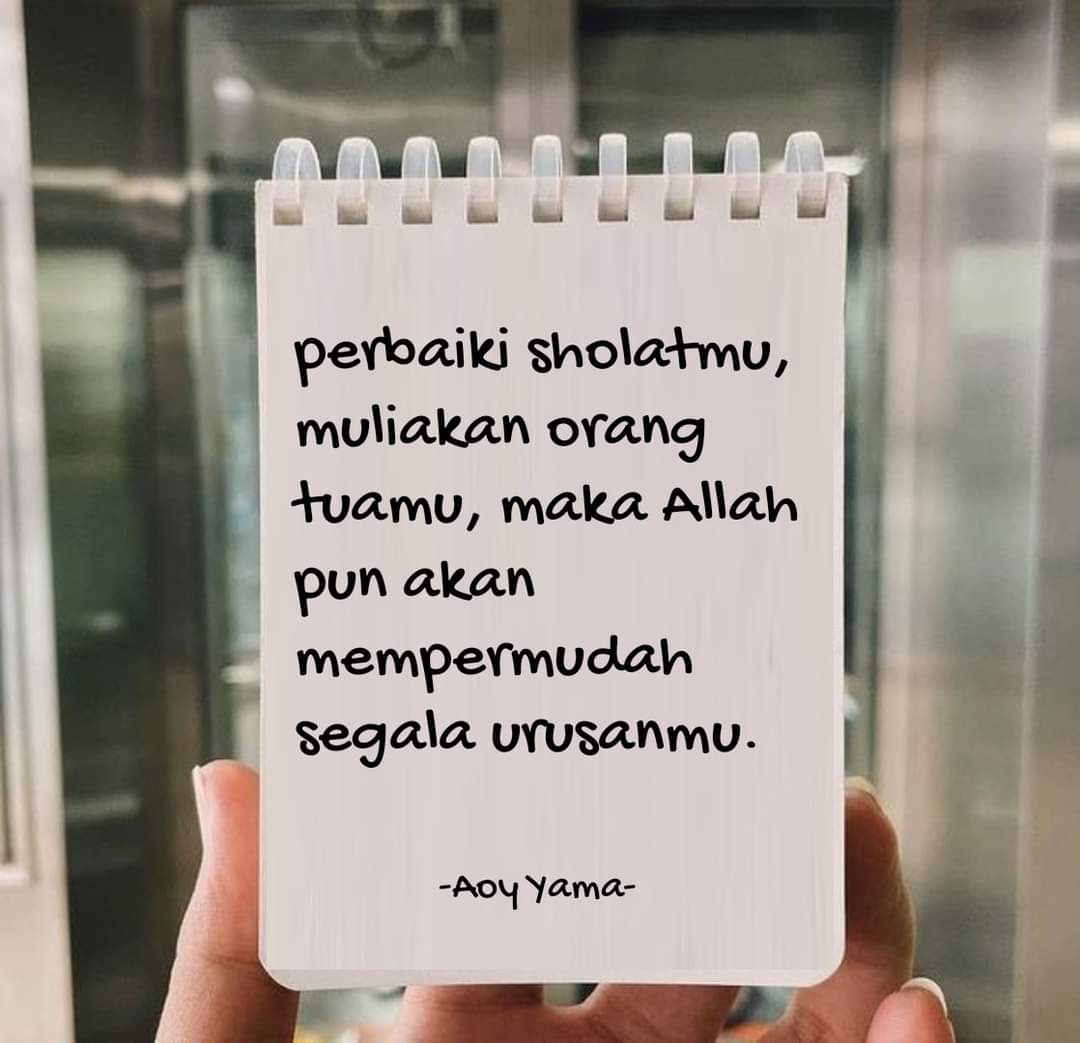 perbaiki sholatmu,
muliakan orang
tuamu, maka Allah
pun akan
mempermudah
segala urusanmu.
-Aoy Yama-